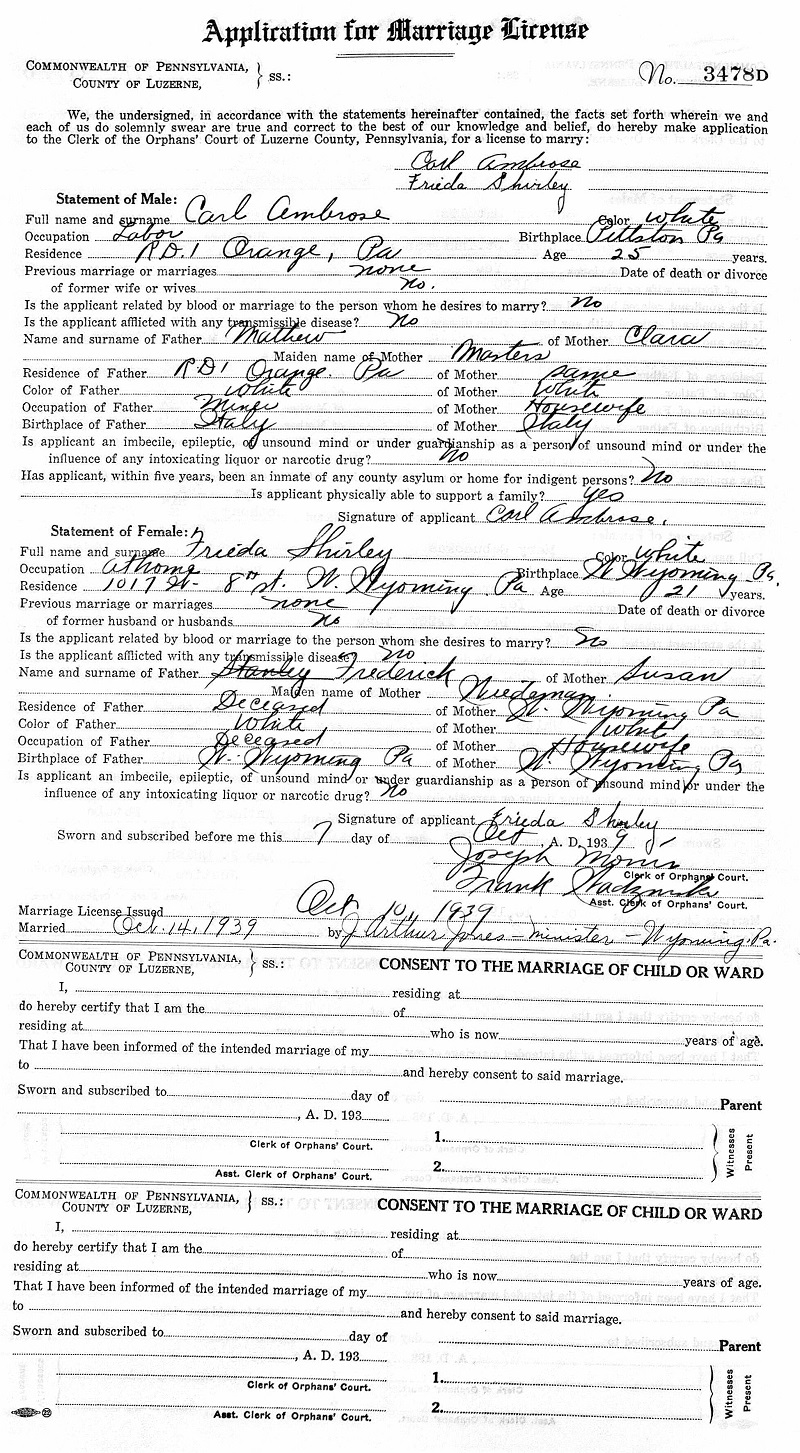 Application for Marriage License
COMMONWEALTH OF PENNSYLVANIA, COUNTY OF LUZERNE, } SS.: No. 3478D
We, the undersigned, in accordance with the statements hereinafter contained, the facts set forth wherein we and
each of us do solemnly swear are true and correct to the best of our knowledge and belief, do hereby make application
to the Clerk of the Orphans' Court of Luzerne County, Pennsylvania, for a license to marry:
Carl Ambrose
Frieda Shirley
Statement of Male:
Full name and surname Carl Ambrose Color White
Occupation Labor Birthplace Pittston Pa
Residence R.D.1 Orange, Pa Age 25 years.
Previous marriage or marriages none Date of death or divorce
of former wife or wives no.
Is the applicant related by blood or marriage to the person whom he desires to marry? no
Is the applicant afflicted with any transmissible disease? No
Name and surname of Father Mathew of Mother Clara
Maiden name of Mother Masters
Residence of Father RD1 Orange. Pa of Mother same
Color of Father White of Mother White
Occupation of Father Miner of Mother Housewife
Birthplace of Father Italy of Mother Italy
Is applicant an imbecile, epileptic, of unsound mind or under guardianship as a person of unsound mind or under the
influence of any intoxicating liquor or narcotic drug? No
Has applicant, within five years, been an inmate of any county asylum or home for indigent persons? No
Is applicant physically able to support a family? yes
Signature of applicant Carl Ambrose.
Statement of Female:
Full name and surname Frieda Shirley Color White
Occupation at home Birthplace W Wyoming Pa.
Residence 1017 W- 8th st. W. Wyoming Pa Age 21 years.
Previous marriage or marriages none Date of death or divorce
of former husband or husbands no
Is the applicant related by blood or marriage to the person whom she desires to marry? No
Is the applicant afflicted with any transmissible disease? No
Name and surname of Father Stanley Frederick of Mother Susan
Maiden name of Mother Niedeman.
Residence of Father Deceased of Mother W. Wyoming Pa
Color of Father White of Mother White
Occupation of Father Deceased of Mother Housewife
Birthplace of Father W- Wyoming Pa of Mother W. Wyoming Pa
Is applicant an imbecile, epileptic, of unsound mind or under guardianship as a person of unsound mind or under the
influence of any intoxicating liquor or narcotic drug? No
Signature of applicant Frieda Shirley
Sworn and subscribed before me this 7 day of Oct, A. D. 1939
Joseph Morris
Clerk of Orphans' Court.
Frank
Asst. Clerk of Orphans' Court.
Marriage License Issued Oct 10, 1939
Married Oct. 14, 1939 by J Arthur Jones - minister - Wyoming. Pa.
COMMONWEALTH OF PENNSYLVANIA, COUNTY OF LUZERNE, } SS.: CONSENT TO THE MARRIAGE OF CHILD OR WARD
I, residing at
do hereby certify that I am the of
residing at who is now years of age.
That I have been informed of the intended marriage of my
to and hereby consent to said marriage.
Sworn and subscribed to day of Parent
, A. D. 193
1.
Clerk of Orphans' Court.
2.
Asst. Clerk of Orphans' Court.
Witnesses Present
COMMONWEALTH OF PENNSYLVANIA, COUNTY OF LUZERNE, } SS.: CONSENT TO THE MARRIAGE OF CHILD OR WARD
I, residing at
do hereby certify that I am the of
residing at who is now years of age.
That I have been informed of the intended marriage of my
to and hereby consent to said marriage.
Sworn and subscribed to day of Parent
, A. D. 193
1.
Clerk of Orphans' Court.
2.
Asst. Clerk of Orphans' Court.
Witnesses Present